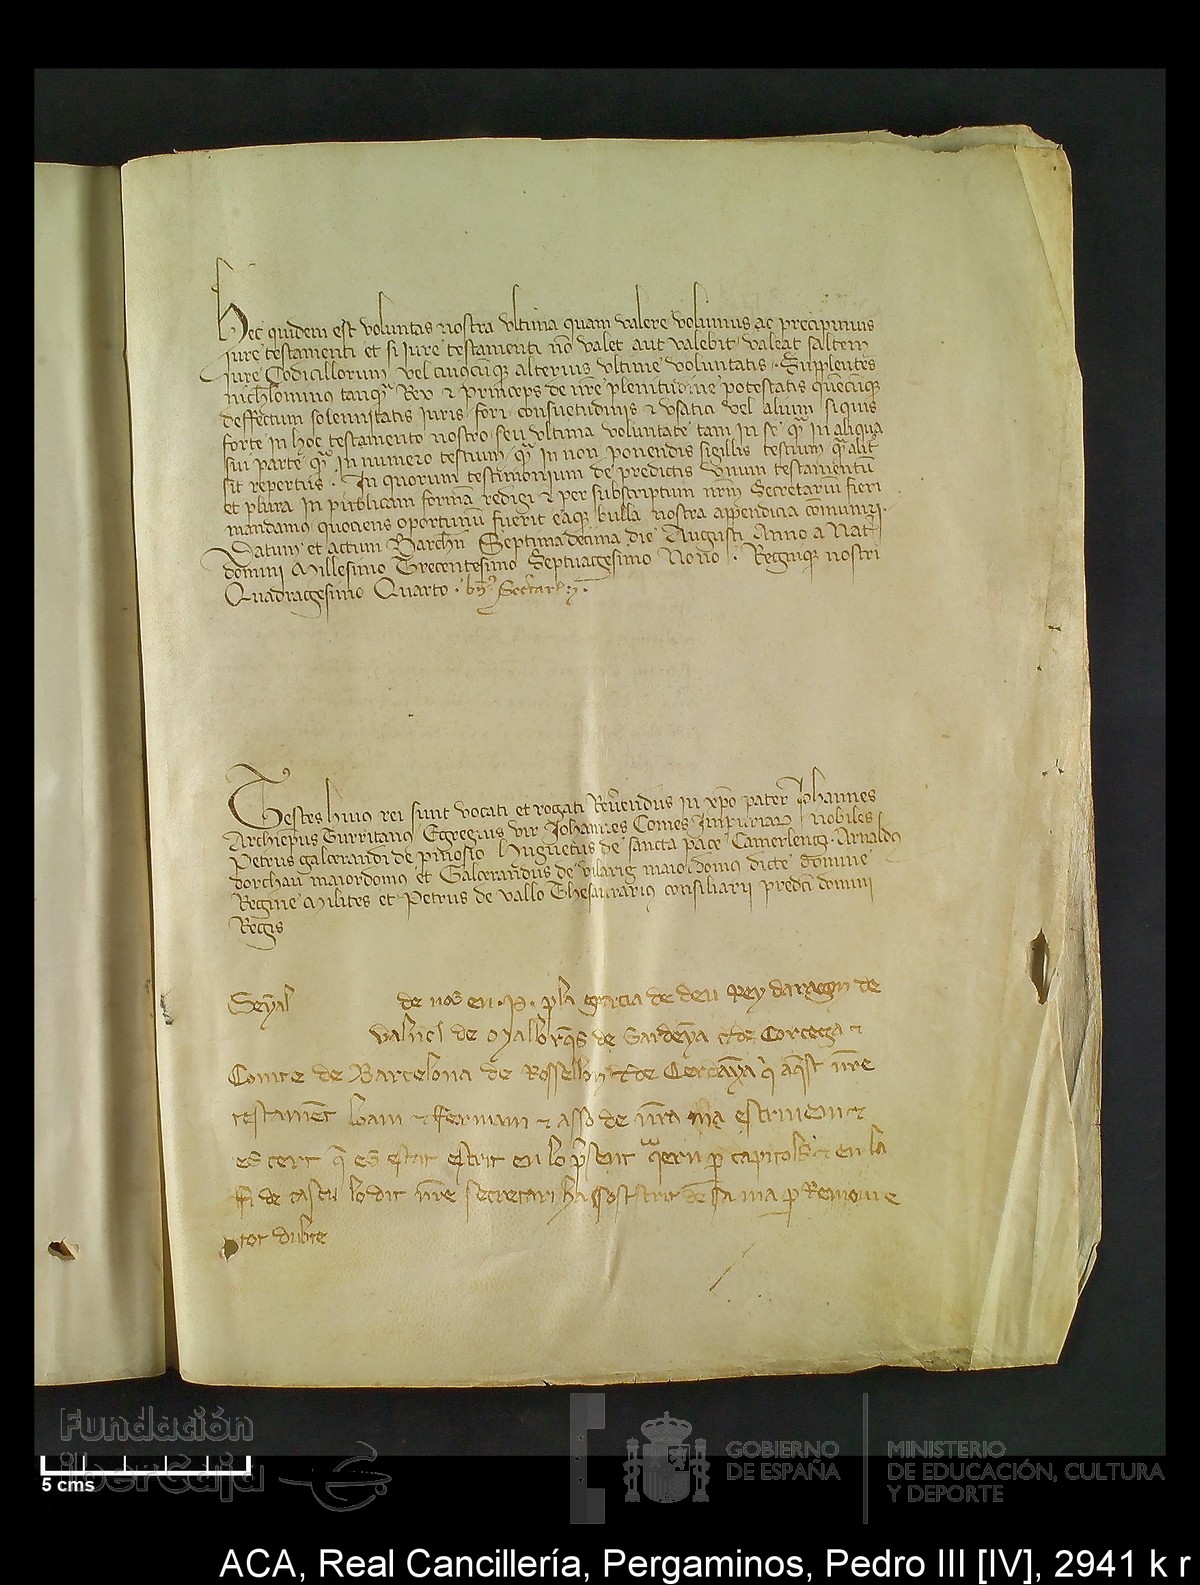 Hec quidem est voluntas nostra ultima quam valere volumus ac precipimus
jure testamenti et si jure testamenti nō valet aut valebit valeat saltem
jure Codicillorum vel cuiuscūq alterius ultime voluntatis. Supplentes
nichilominus tanq̄ Rex & princeps de nr̄e plenitudine potestatis quēcūq
deffectum solennitatis iuris fori consuetudinis & usatici vel alium siquis
forte in hoc testamento nostro seu ultima voluntate tam in se q̄ in aliqua
sui parte q̄ in numero testium q̄ in non ponendis sigillis testium q̄ alit̄
sit repertus. In quorum testimonium de predictis unum testamentū
et plura in publicam formā redigi & per subscriptum nr̄m Secretariū fieri
mandamus quociens oportunū fuerit eaq bulla nostra appendicia cōmuniri.
Datum et actum Barchn̄ Septimadecima die Augusti Anno a Nat̄
domini Millesimo Trecentesimo Septuagesimo Nono. Regniq nostri
Quadragesimo Quarto.
Testes huius rei sunt vocati et rogati Rev̄endus in xp̄o pater Johannes
Archiep̄us Turritanus Egregius vir Johannes Comes Impuriar nobiles
Petrus galcerandi de pinosio Huguetus de sancta pace Camerleng. Arnaldus
dorchau maiordomus et Galcerandus de vilarig maiordomus dicte domine
Regine Milites et Petrus de vallo Thesaurarius consiliarii predc̄i domini
Regis
Sēyal de nos en .P. p la gracia de deu Rey daragon de
Valn̄cl de Mallorq̄s de Sardēya & de Corcega &
Comte de Barcelona de Rossellon & de Cerdāya q̄ aq̄st nr̄e
testament loam & fermam & asso de nr̄a ma escrivem &
es cert q̄ es estat escrit en lo p̄sent q̄ern p capitols & en la
fi de cascu lo dit nr̄e secretari ha sostscrit de sa ma p Remoure
tot dubte
5 cms
Fundación
iberCaja
GOBIERNO
DE ESPAÑA
MINISTERIO
DE EDUCACIÓN, CULTURA
Y DEPORTE
ACA, Real Cancillería, Pergaminos, Pedro III [IV], 2941 k r